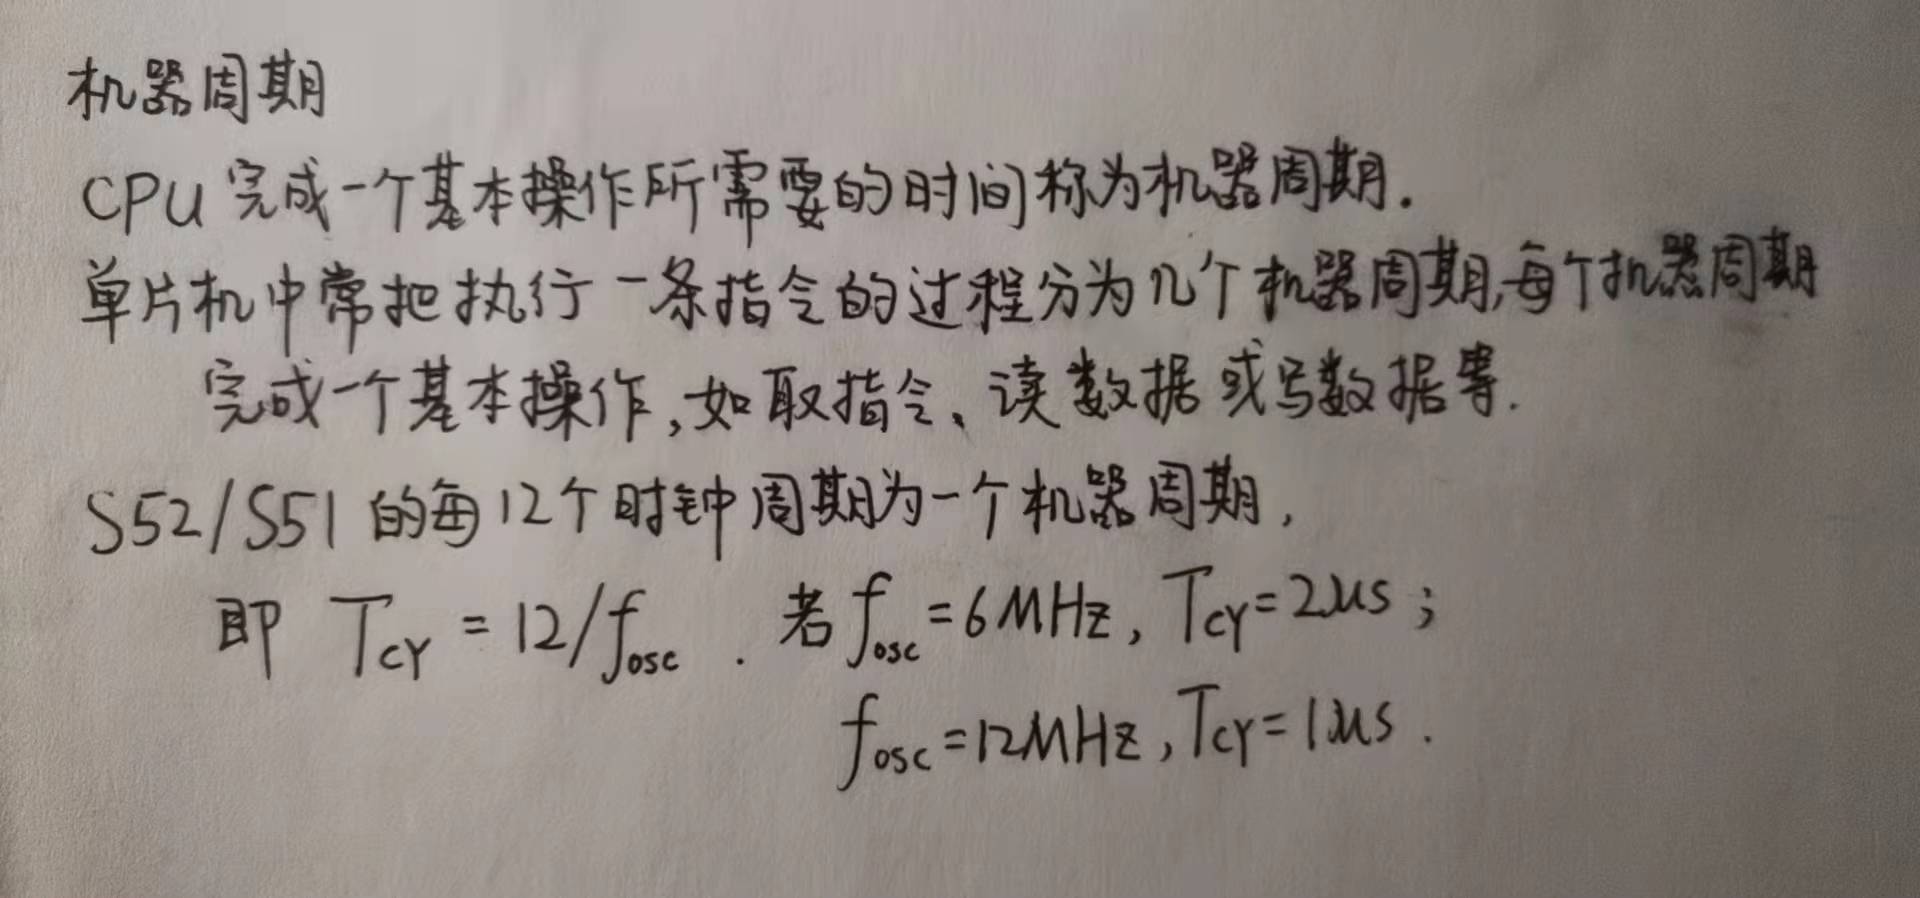 机器周期
CPU完成一个基本操作所需要的时间称为机器周期.
单片机中常把执行一条指令的过程分为几个机器周期,每个机器周期
完成一个基本操作,如取指令、读数据或写数据等.
S52/S51的每12个时钟周期为一个机器周期,
即 Tcy = 12/fosc . 若 fosc = 6MHz, Tcy = 2μs ;
fosc = 12MHz, Tcy = 1μs .